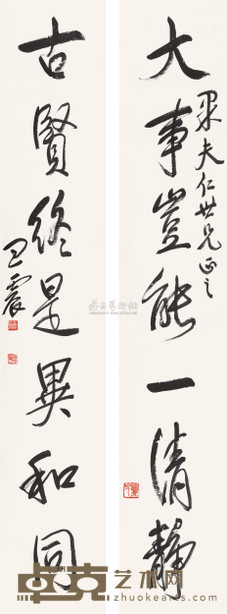 大事豈能一清靜
果夫仁世兄正之
古賢終是異和同
王震
卓克艺术网
www.zhuokearts.com